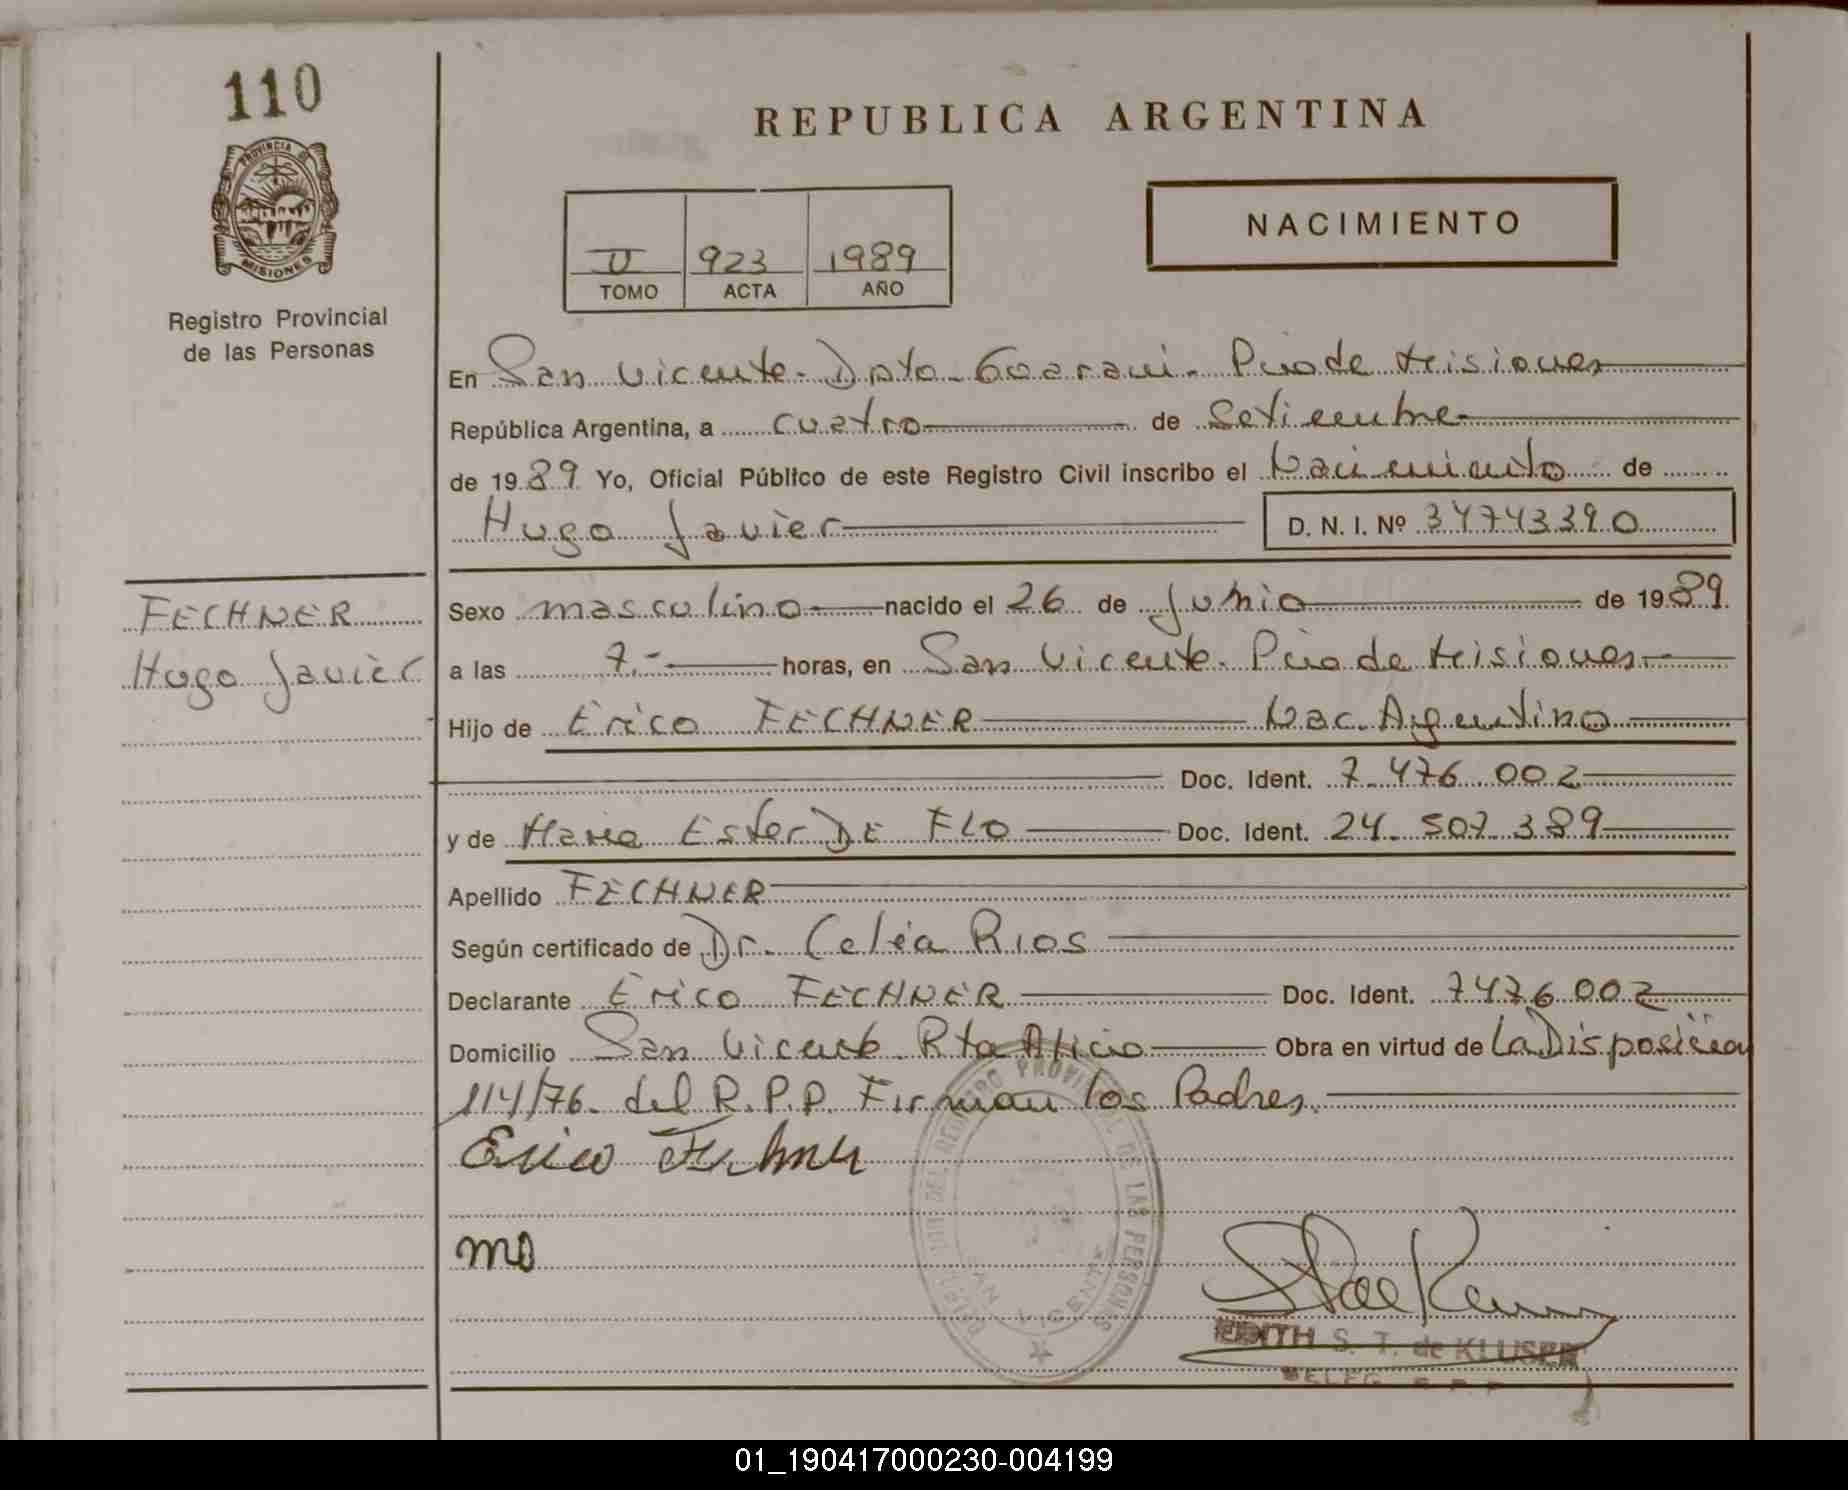 110
PROVINCIA DE
MISIONES
Registro Provincial
de las Personas
REPUBLICA ARGENTINA
NACIMIENTO
II 923 1989
TOMO ACTA AÑO
En San Vicente - Dpto - Guarani - Pcia de Misiones
República Argentina, a cuatro de Setiembre
de 1989 Yo, Oficial Público de este Registro Civil inscribo el Nacimiento de
Hugo Javier D. N. I. Nº 34743390
FECHNER
Hugo Javier
Sexo masculino nacido el 26 de Junio de 1989
a las 7.- horas, en San Vicente - Pcia de Misiones
Hijo de Erico FECHNER Nac. Argentino
Doc. Ident. 7.476.002
y de Maria Ester DE FLO Doc. Ident. 24.507.389
Apellido FECHNER
Según certificado de Dr. Celia Rios
Declarante Erico FECHNER Doc. Ident. 7476002
Domicilio San Vicente Rta Obra en virtud de La Disposicion
114/76. del R.P.P. Firman los Padres.
Erico Fechner
DEL REGISTRO PROVINCIAL DE LAS PERSONAS
SAN VICENTE
EDITH S. T. de KLUSER